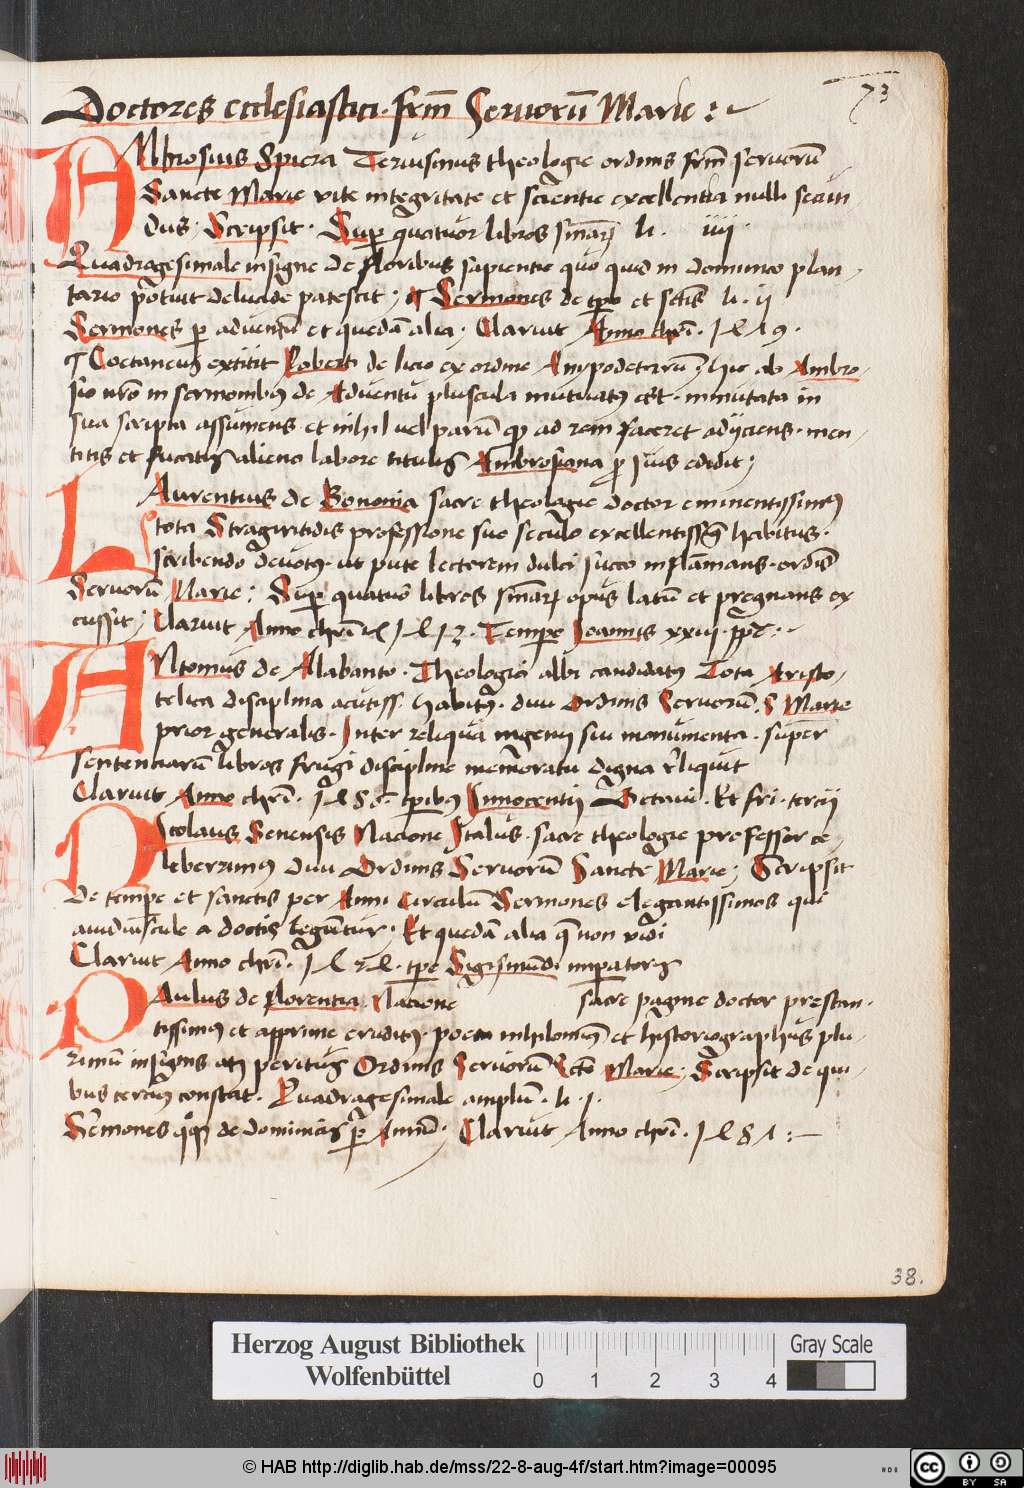 73
Doctores ecclesiastici. frm̄ Seruorū Marie :
AMbrosius Spiera Teruisinus theologie ordinis frm̄ seruorū
Sancte Marie vite integritate et scientie excellentia nulli secun
dus; Scripsit. Sup quatuor libros sm̄aꝝ li. iiij.
Quadragesimale insigne de floribus sapientie quo quid in dominico plan
tario delucide patescit; Sermones de tpe et sctis li. ij
Sermones p aduentū et quedā alia; Claruit Anno chri. 1419.
Coetaneus extitit Roberti de licio ex ordine hic ab Ambro
sio nr̄o in sermonibus de Aduentu pluscula mutuatus est. inmutata in
sua scripta assumens. et nihil uel parū qd ad rem faceret adijciens. men
titis et fucatis alieno labore titulis Ambrosiana p suis edidit;
LAurentius de Bononia sacre theologie doctor eminentissimus
tota Stragiritidis professione suo seculo excellentissus habitus.
scribendo deuotus. ut pute lectorem dulci succo inflāmans. ordīs
Seruorū Marie; Sup quatuor libros sm̄aꝝ opus latū et pregnans ex
cussit; Claruit Anno chri 1412. Tempe Joannis xxiij. ppe :
ANtonius de Alabanto. Theologici albi candidatus Tota Aristo
telica disciplina acutiss. habitus. diui Ordinis Seruorū. S Marie
prior generalis. Inter reliqua ingenij sui monumenta. super
sententiarū libros frugi discipline memoratu digna reliquit
Claruit Anno chri. 1486. tpibus Innocentij Octaui. Et fri. tercij
NIcolaus Senensis Nacione Italus. sacre theologie professor ce
leberrimus diui Ordinis Seruorū Sancte Marie; Scripsit
de tempe et sanctis per Anni circulū Sermones elegantissimos qui
auidiuscule a doctis leguntur; Et quedā alia q̄ non vidi
Claruit Anno chri. 1424. tpe Sigismundi imperatoris
PAulus de florentia. Natione sacre pagine doctor prestan
tissimus et apprime eruditus. poeta nihilominus et historiographus plu
rimū insignis atqꝫ peritus Ordinis Seruorū Scte Marie; Scripsit de qui
bus tercius constat. Quadragesimale amplū. li. j.
Sermones qqꝫ de dominicis p Annū; Claruit Anno chri. 1481 :
38.
Herzog August Bibliothek
Wolfenbüttel
0 1 2 3 4
Gray Scale
© HAB http://diglib.hab.de/mss/22-8-aug-4f/start.htm?image=00095
cc BY SA